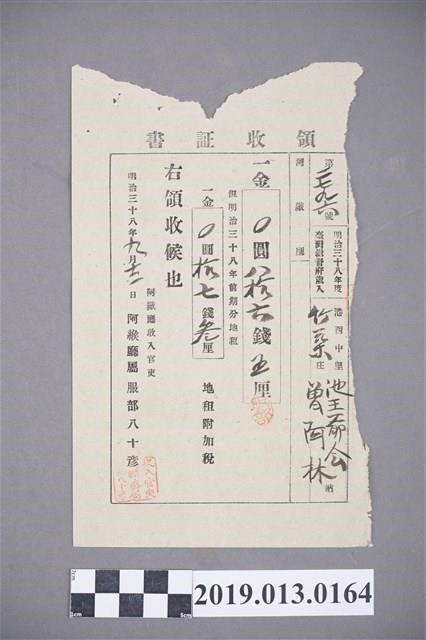 領收証書
第二七九六號
阿緱廳
明治三十八年度
臺灣總督府歲入
港西中里
竹葉庄
池王爺会
曾阿林
納
一金〇圓拾六錢五厘
但明治三十八年前期分地租
一金〇圓拾七錢叁厘 地租附加稅
右領收候也
明治三十八年九月 日
阿緱廳收入官吏
阿緱廳屬服部八十彥
2cm
1cm
5cm
2019.013.0164